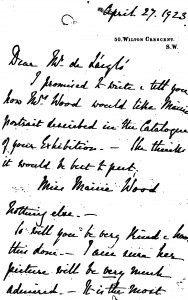 April 27. 1923
50, WILTON CRESCENT,
S.W.
Dear Mr. de László
I promised to write & tell you
how Mrs. Wood would like Mairie
portrait described in the Catalogue
of your Exhibition. — She thinks
it would be best to put,
Miss Mairie Wood
nothing else. —
So will you be very kind & have
this done — I am sure her
picture will be very much
admired. — It is the most